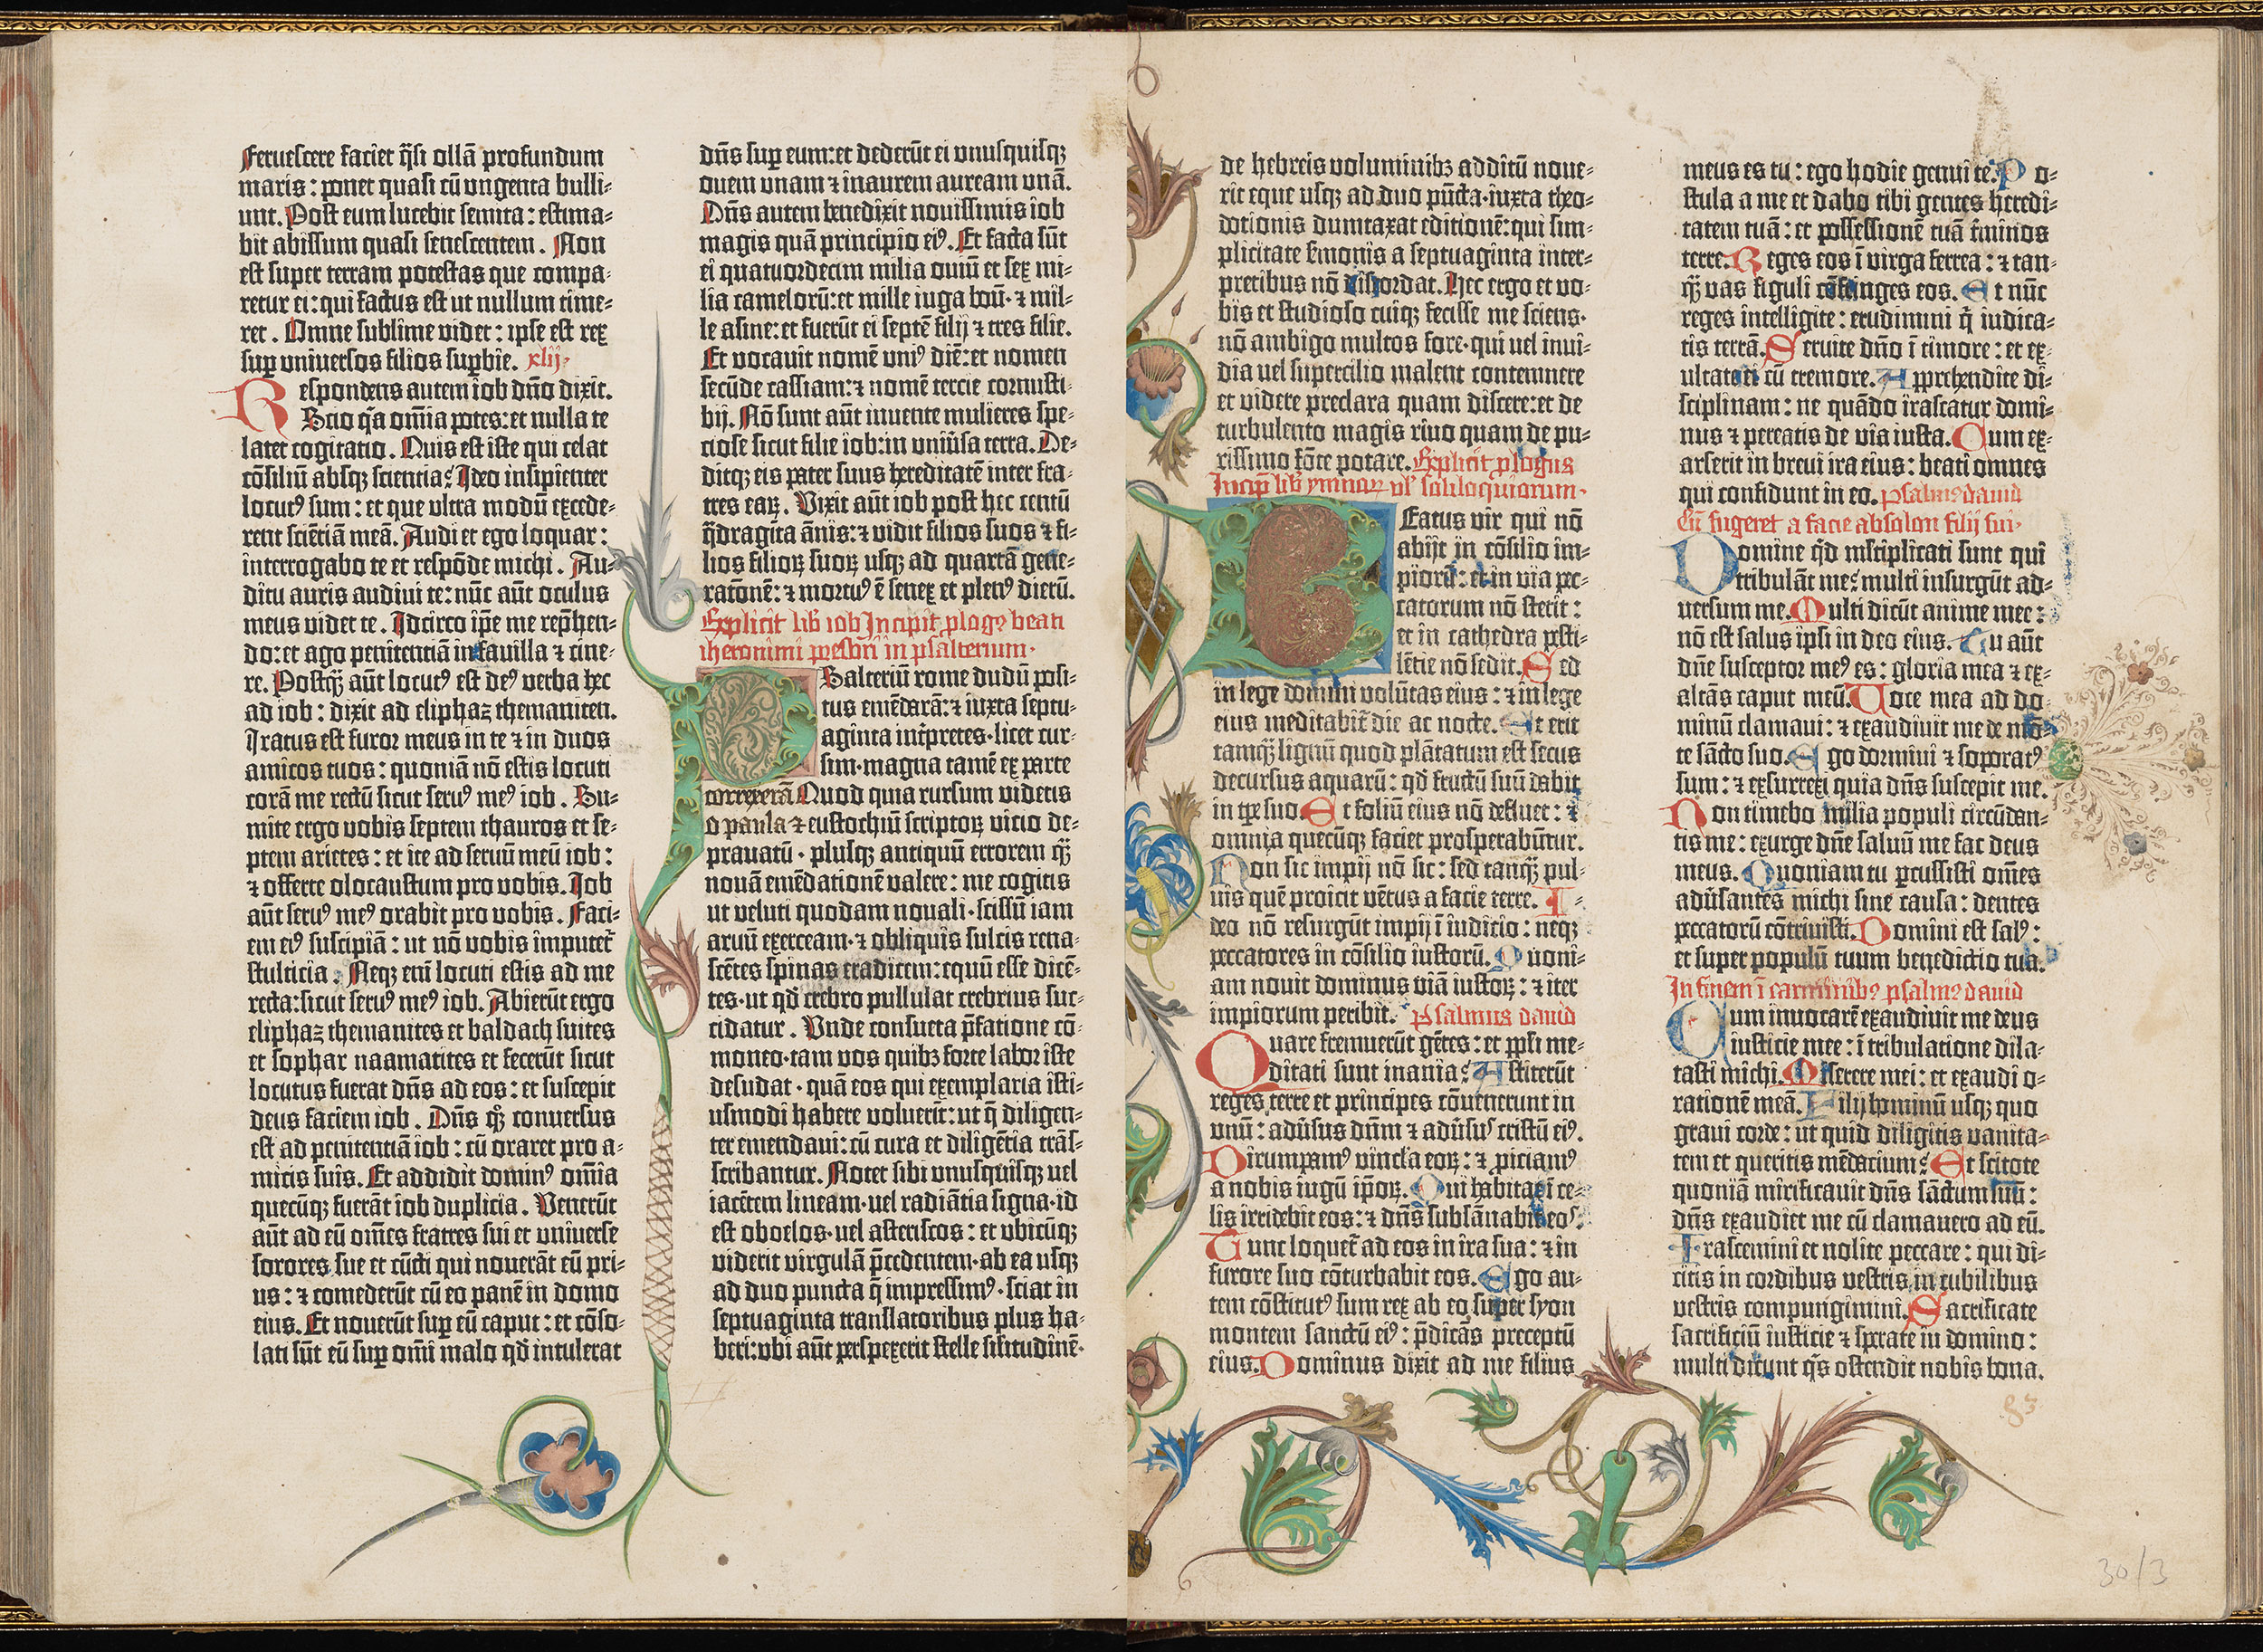 feruescere faciet q̃si ollã profundum
maris : ponet quasi cũ vngenta bulli-
unt. Post eum lucebit semita : estima-
bit abissum quasi senescentem. Non
est super terram potestas que compa-
retur ei : qui factus est ut nullum time-
ret. Omne sublime videt : ipse est rex
sup̱ vniuersos filios sup̱bie. xlij.
Respondens autem iob dño dixit.
Scio q̃a om̃ia potes: et nulla te
latet cogitatio. Quis est iste qui celat
cõsiliũ absq; scientia? Ideo insipienter
locutꝰ sum : et que vltra modũ excede-
rent sciẽtiã meã. Audi et ego loquar :
interrogabo te et respõde michi. Au-
ditu auris audiui te: nũc aũt oculus
meus videt te. Idcirco ip̃e me rep̱hen-
do: et ago penitentiã in fauilla ⁊ cine-
re. Postq̃ȝ aũt locutꝰ est deꝰ verba hec
ad iob : dixit ad eliphaz themaniten.
Iratus est furor meus in te ⁊ in duos
amicos tuos : quoniã nõ estis locuti
corã me rectũ sicut seruꝰ meꝰ iob. Su-
mite ergo vobis septem thauros et se-
ptem arietes : et ite ad seruũ meũ iob :
⁊ offerte olocaustum pro vobis. Iob
aũt seruꝰ meꝰ orabit pro vobis. Faci-
em eiꝰ suscipiã : ut nõ vobis imputet̃
stulticia. Neq; eni locuti estis ad me
recta: sicut seruꝰ meꝰ iob. Abierũt ergo
eliphaz themanites et baldach suites
et sophar naamatites et fecerũt sicut
locutus fuerat dñs ad eos : et suscepit
deus faciem iob. Dñs q̊ȝ conuersus
est ad penitentiã iob : cũ oraret pro a-
micis suis. Et addidit dominꝰ om̃ia
quecũq; fuerãt iob duplicia. Venerũt
aũt ad eũ om̃es fratres sui et vniuerse
sorores sue et cũcti qui nouerãt eũ pri-
us : ⁊ comederũt cũ eo panẽ in domo
eius. Et mouerũt sup̱ eũ caput : et cõso-
lati sũt eũ sup̱ om̃i malo qd̓ intulerat
dñs sup̱ eum: et dederũt ei vnusquisq;
ouem vnam ⁊ inaurem auream vnã.
Dñs autem benedixit nouissimis iob
magis quã principio eiꝰ. Et facta sũt
ei quatuordecim milia ouiũ et sex mi-
lia camelorũ: et mille iuga boũ ⁊ mil-
le asine: et fuerũt ei septẽ filij ⁊ tres filie.
Et vocauit nomẽ vniꝰ diẽ: et nomen
secũde cassiam: ⁊ nomẽ tercie cornusti-
bij. Nõ sunt aũt inuente mulieres spe-
ciose sicut filie iob: in vniũsa terra. De-
ditq; eis pater suus hereditatẽ inter fra-
tres eaꝝ. Vixit aũt iob post hec centũ
q̃dragĩta ãnis: ⁊ vidit filios suos ⁊ fi-
lios filioꝝ suoꝝ usq; ad quartã gene-
ratonẽ: ⁊ mortuꝰ ẽ senex et plenꝰ dierũ.
Explicit lib̓ iob Incipit ꝓlogꝰ beati
iheronimi presbiri in psalterium.
Psalteriũ rome dudũ posi-
tus emẽdarã: ⁊ iuxta septu-
aginta int̓pretes. licet cur-
sim. magna tamẽ ex parte
correxerã Quod quia rursum videtis
o paula ⁊ eustochiũ scriptoꝝ vicio de-
prauatũ. plusq; antiquũ errorem q̃ȝ
nouã emẽdationẽ valere: me cogitis
ut veluti quodam nouali. scissũ iam
aruũ exerceam. ⁊ obliquis sulcis rena-
scẽtes spinas eradicem: equũ esse dicẽ-
tes. ut qd̓ crebro pullulat crebrius suc-
cidatur. Vnde consueta p̃fatione cõ-
moneo. tam vos quibȝ forte labor iste
desudat. quã eos qui exemplaria isti-
usmodi habere voluerĩt: ut q̃ diligen-
ter emendaui: cũ cura et diligẽtia trãs-
scribantur. Notet sibi vnusquisq; vel
iacẽtem lineam. vel radiãtia signa. id
est obelos. vel astericos : et vbicũq;
viderit virgulã p̃cedentem. ab ea usq;
ad duo puncta q̃ impressimꝰ. sciat in
septuaginta translatoribus plus ha-
beri: vbi aũt perspexerit stelle sil̓itudinẽ.
de hebreis voluminibȝ additũ noue-
rit eque usq; ad duo pũcta. iuxta theo-
dotionis dumtaxat editionẽ: qui sim-
plicitate s̓monis a septuaginta inter-
pretibus nõ discordat. Hec ergo et vo-
bis et studioso cuiq; fecisse me sciens.
nõ ambigo multos fore. qui vel inui-
dia vel supercilio malent contemnere
et videre preclara quam discere: et de
turbulento magis riuo quam de pu-
rissimo fõte potare. Explicit ꝓlogus
Incip̱ lib̓ ymnoꝝ vl̓ soliloquiorum.
Beatus vir qui nõ
abijt in cõsilio im-
piorũ: et in via pec-
catorum nõ stetit :
et in cathedra pesti-
lẽtie nõ sedit. Sed
in lege domini volũtas eius : ⁊ in lege
eius meditabit̓ die ac nocte. Et erit
tamq̃ȝ lignũ quod plãtatum est secus
decursus aquarũ : qd̓ fructũ suũ dabit
in tp̱e suo. Et foliũ eius nõ defluet : ⁊
omnia quecũq; faciet prosperabũtur.
Non sic impij nõ sic : sed tamq̃ȝ pul-
uis quẽ proicit vẽtus a facie terre. I-
deo nõ resurgũt impij ĩ iudicio : neq;
peccatores in cõsilio iustorũ. Quoni-
am nouit dominus viã iustoꝝ : ⁊ iter
impiorum peribit. Psalmus dauid
Quare fremuerũt gẽtes : et ppl̓i me-
ditati sunt inania? Astiterũt
reges terre et principes cõuenerunt in
vnũ : adũsus dñm ⁊ adũsus cristũ eiꝰ.
Dirumpamꝰ vincl̓a eoꝝ : ⁊ ꝓiciamꝰ
a nobis iugũ ip̃oꝝ. Qui habitat ĩ ce-
lis irridebit eos : ⁊ dñs subsãnabit eos.
Tunc loquet̓ ad eos in ira sua : ⁊ in
furore suo cõturbabit eos. Ego au-
tem cõstitutꝰ sum rex ab eo super syon
montem sanctũ eiꝰ : p̃dicãs preceptũ
eius. Dominus dixit ad me filius
meus es tu : ego hodie genui te. Po-
stula a me et dabo tibi gentes heredi-
tatem tuã : et possessionẽ tuã t̓minos
terre. Reges eos ĩ virga ferrea : ⁊ tan-
q̃ȝ vas figuli cõfringes eos. Et nũc
reges intelligite : erudimini q̃ iudica-
tis terrã. Seruite dño ĩ timore : et ex-
ultate ei cũ tremore. Apprehendite di-
sciplinam : ne quãdo irascatur domi-
nus ⁊ pereatis de via iusta. Cum ex-
arserit in breui ira eius : beati omnes
qui confidunt in eo. psalmꝰ dauid
Cũ fugeret a facie absolon filij sui.
Domine qd̓ ml̓tiplicati sunt qui
tribulãt me? multi insurgũt ad-
uersum me. Multi dicũt anime mee :
nõ est salus ip̃i in deo eius. Tu aũt
dñe susceptor meꝰ es : gloria mea ⁊ ex-
altãs caput meũ. Voce mea ad do-
minũ clamaui : ⁊ exaudiuit me de mõ-
te sãcto suo. Ego dormiui ⁊ soporatꝰ
sum : ⁊ exsurrexi quia dñs suscepit me.
Non timebo milia populi circũdan-
tis me : exurge dñe saluũ me fac deus
meus. Quoniam tu ꝑcussisti om̃es
adũsantes michi sine causa : dentes
peccatorũ cõtriuisti. Domini est salꝰ :
et super populũ tuum benedictio tua.
In finem ĩ carminibꝰ psalmꝰ dauid
Cum inuocarẽ exaudiuit me deus
iusticie mee : ĩ tribulatione dila-
tasti michi. Miserere mei : et exaudi o-
rationẽ meã. Filij hominũ usq; quo
graui corde : ut quid diligitis vanita-
tem et queritis mẽdacium? Et scitote
quoniã mirificauit dñs sãctum suũ :
dñs exaudiet me cũ clamauero ad eũ.
Irascimini et nolite peccare : qui di-
citis in cordibus vestris in cubilibus
vestris compungimini. Sacrificate
sacrificiũ iusticie ⁊ sperate in domino :
multi dicunt q̃s ostendit nobis bona.
83
30/3